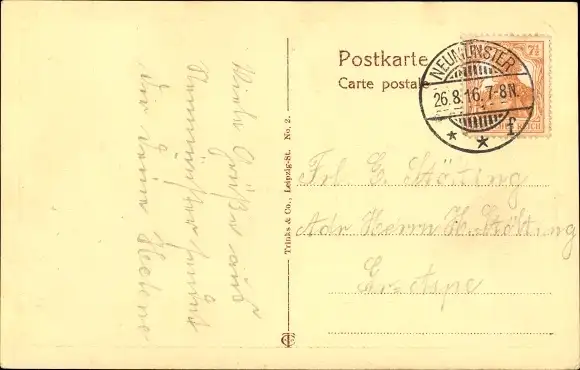 Postkarte
Carte postale
NEUMÜNSTER
26.8.16.7-8N.
* * f
7½
Trinks & Co., Leipzig-St. No. 2.
Viele Grüße aus
Neumünster sendet
Dir Deine Helene
Frl E. Stölting
Adr Herrn H. Stölting
Gr=Aspe